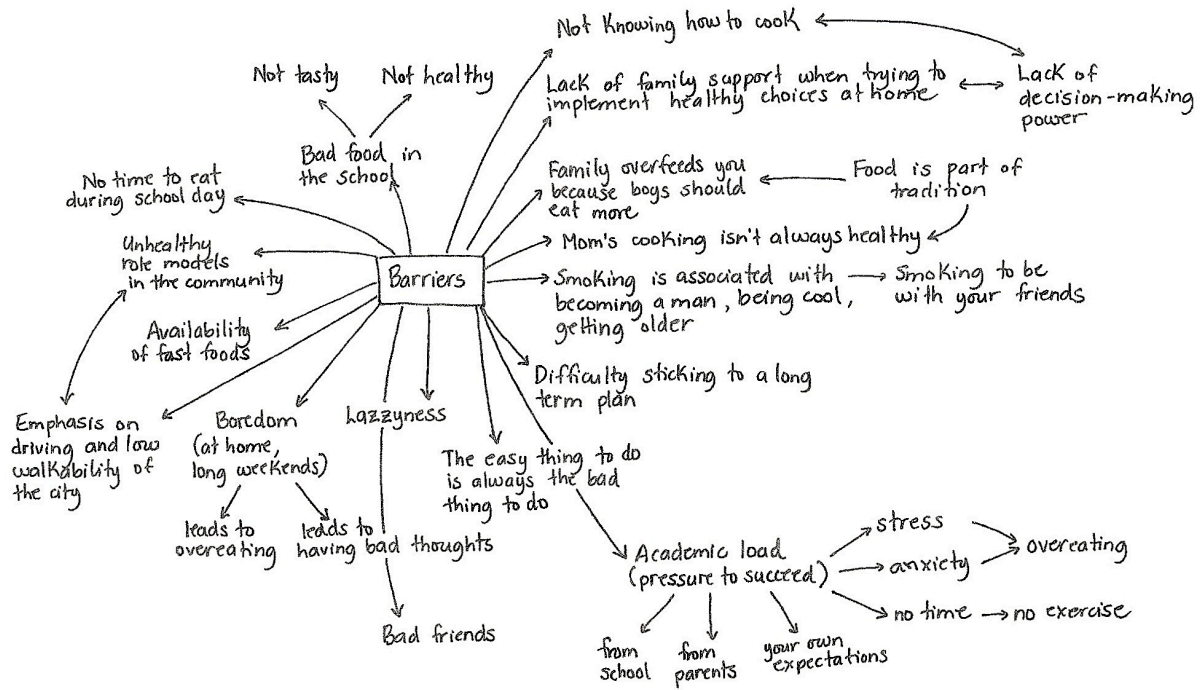 Not Knowing how to cook
Not tasty
Not healthy
Lack of family support when trying to
implement healthy choices at home
Lack of
decision-making
power
Bad food in
the school
No time to eat
during school day
Family overfeeds you
because boys should
eat more
Food is part of
tradition
Unhealthy
role models
in the community
Mom's cooking isn't always healthy
Barriers
Smoking is associated with
becoming a man, being cool,
getting older
Smoking to be
with your friends
Availability
of fast foods
Difficulty sticking to a long
term plan
Emphasis on
driving and low
walkability of
the city
Boredom
(at home,
long weekends)
Lazzyness
The easy thing to do
is always the bad
thing to do
leads to
overeating
leads to
having bad thoughts
Academic load
(pressure to succeed)
stress
anxiety
overeating
no time
no exercise
Bad friends
from
school
from
parents
your own
expectations